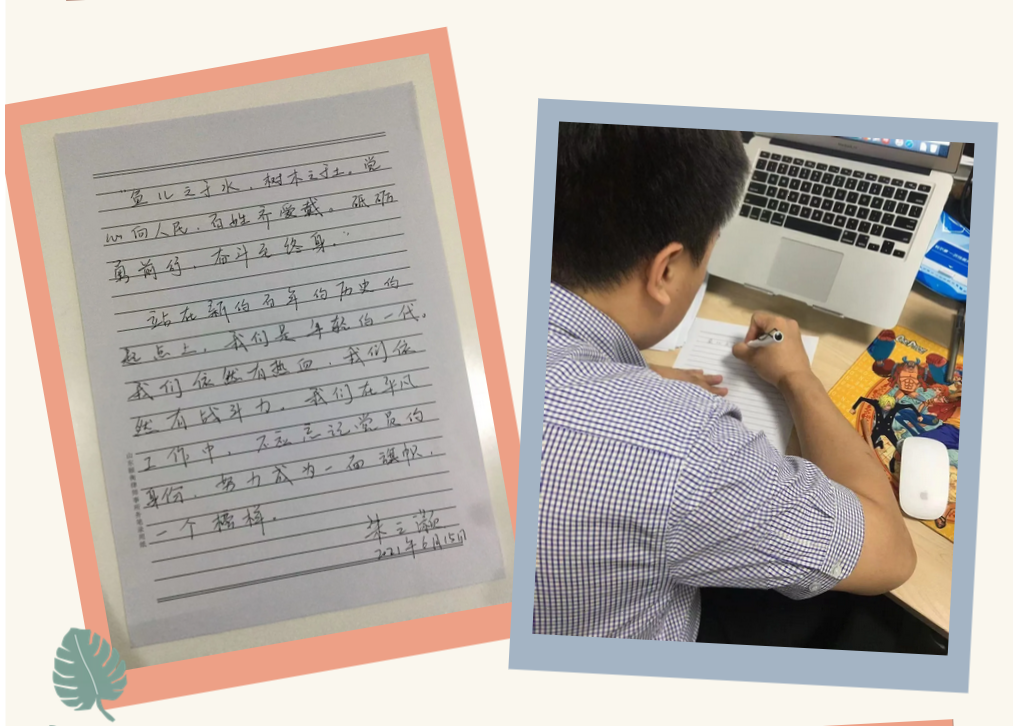 “鱼儿之于水,树木之于土,党
心向人民,百姓齐爱戴。砥砺
勇前行,奋斗至终身.”
站在新的百年的历史的
起点上,我们是年轻的一代,
我们依然有热血,我们依
然有战斗力,我们在平凡
工作中,不忘记党员的
身份,努力成为一面旗帜,
一个榜样.
朱
2021年6月15日